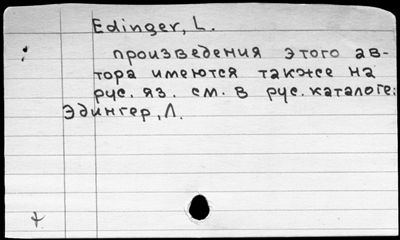 Edinger, L.
произведения этого ав-
тора имеются также на
рус. яз. см. в рус. каталоге:
Эдингер, Л.